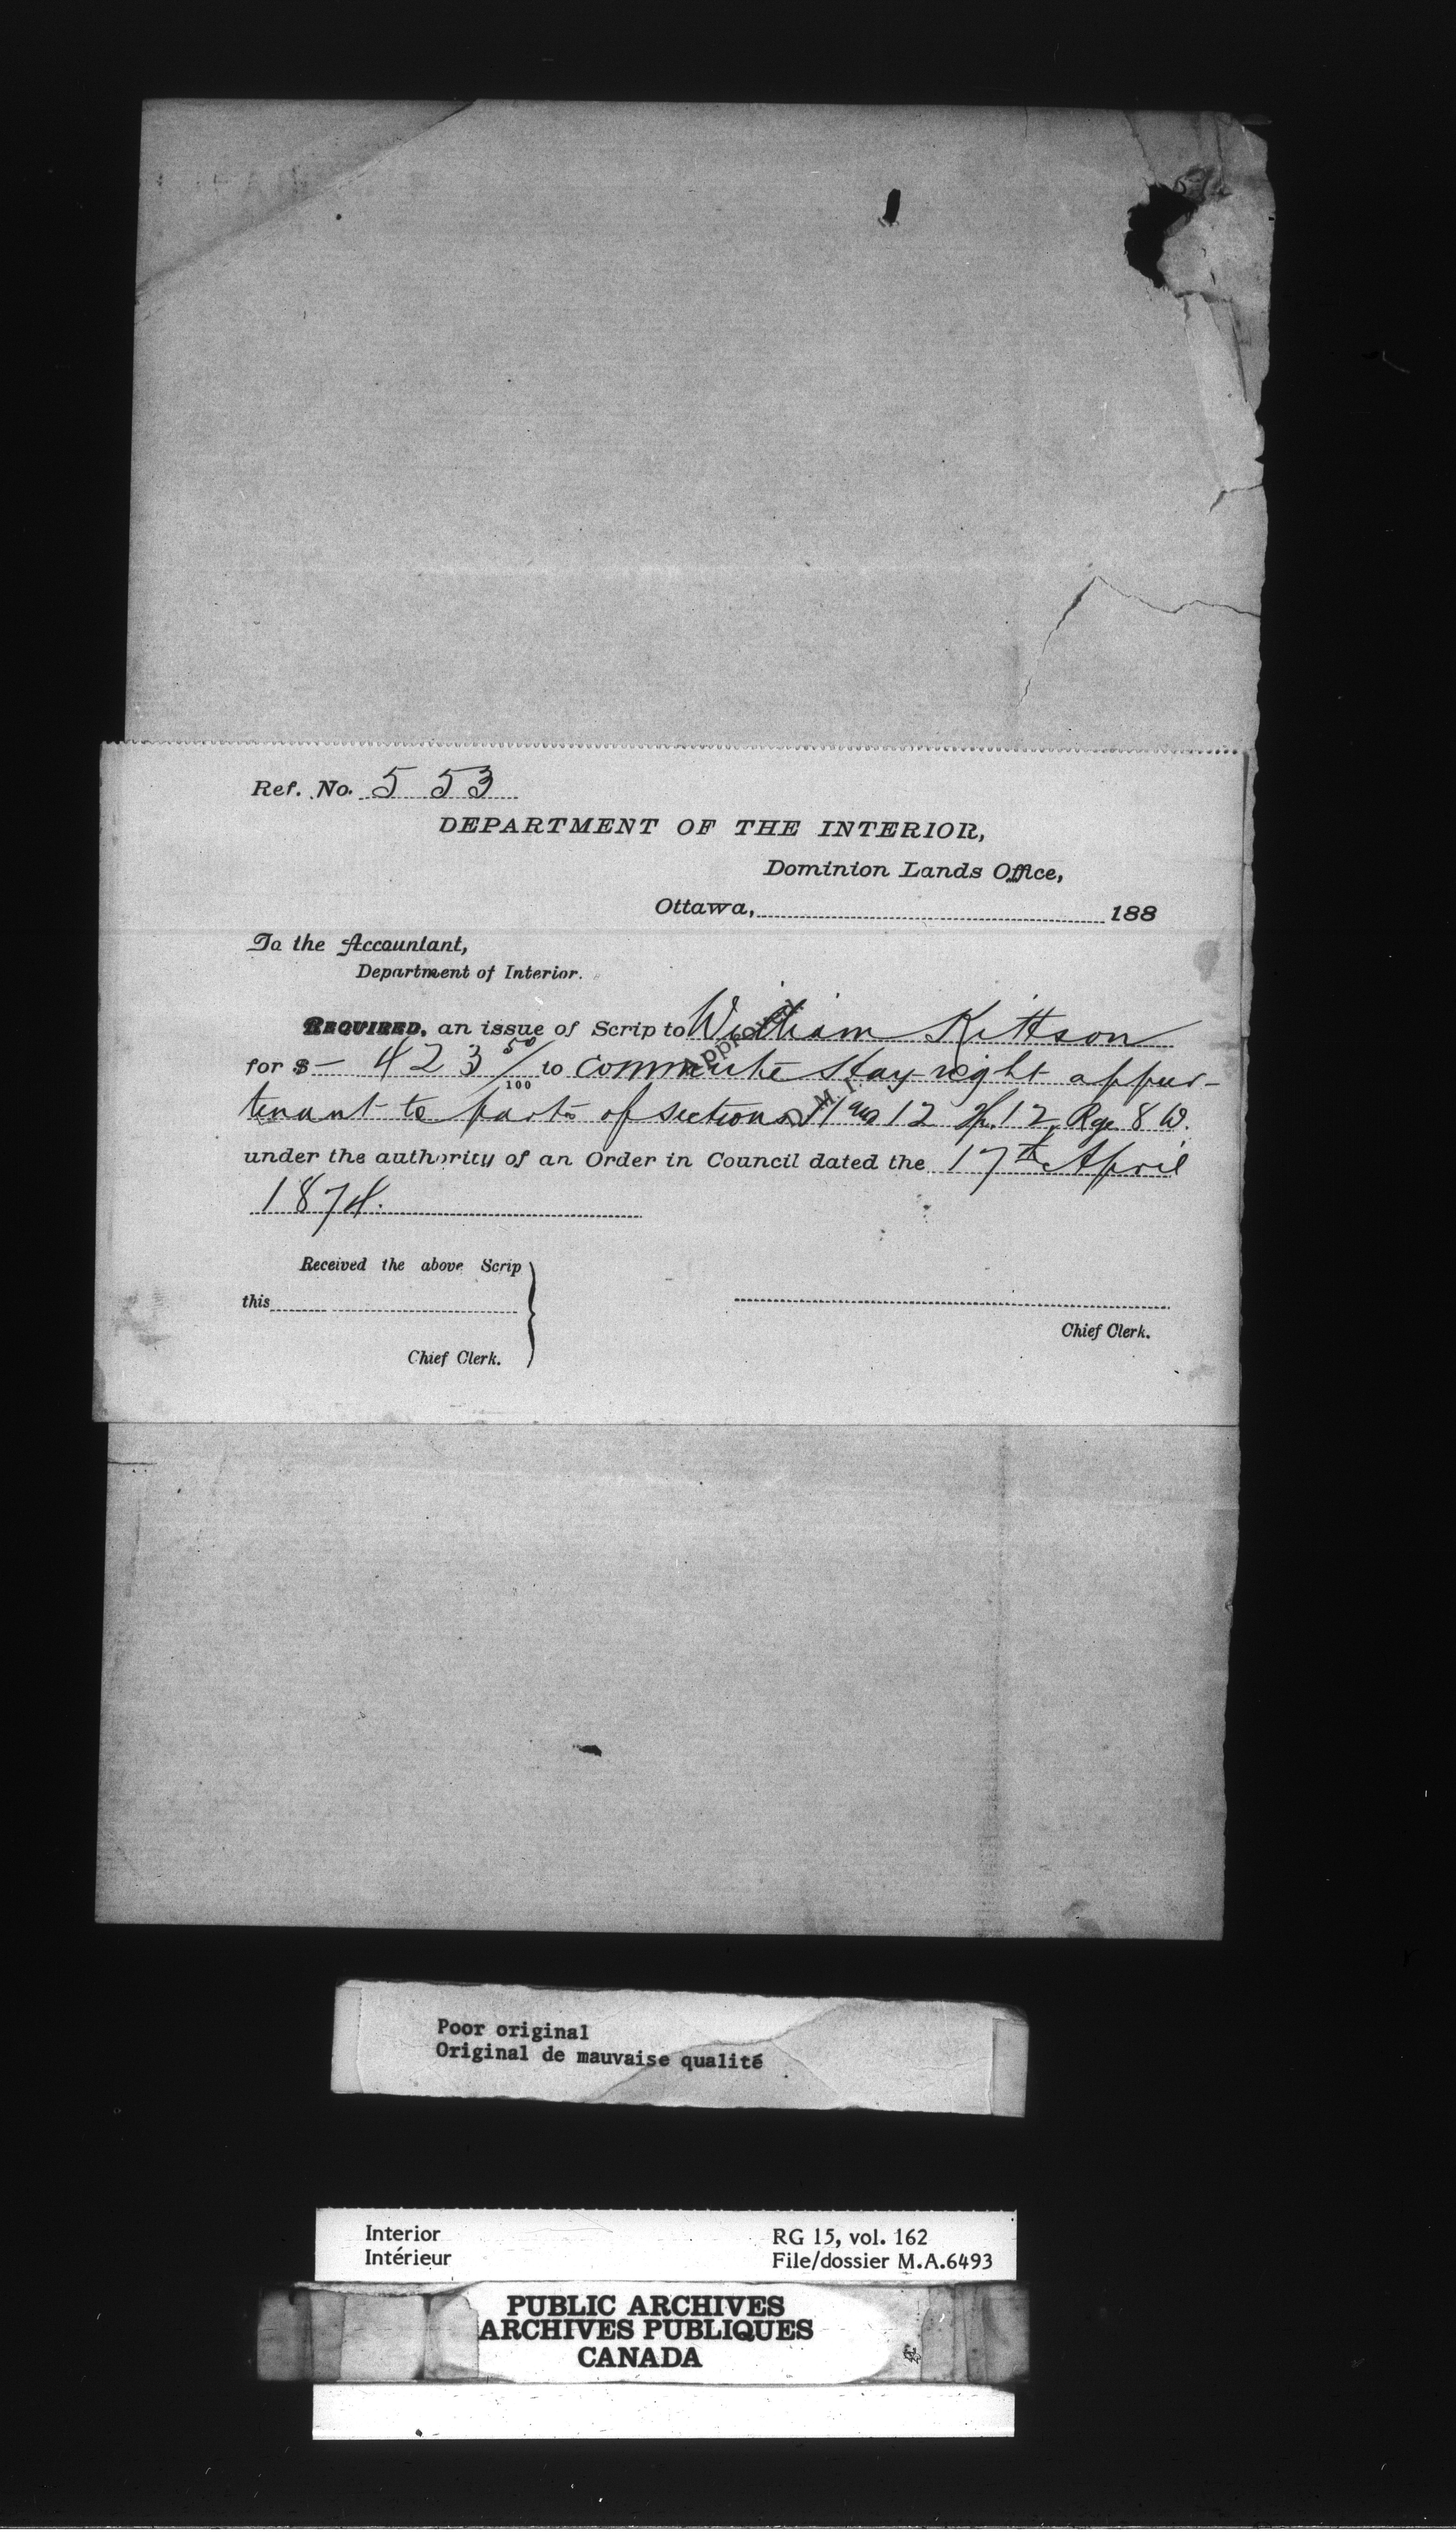 Ref. No. 553
DEPARTMENT OF THE INTERIOR,
Dominion Lands Office,
Ottawa, 188
To the Accountant,
Department of Interior.
REQUIRED, an issue of Scrip to William Kittson
for $ - 423 50/100 to commute Hay right appur-
tenant to parts of sections 11 and 12 Tp. 12, Rge 8 W.
under the authority of an Order in Council dated the 17th April
1874.
Received the above Scrip
this
Chief Clerk.
Chief Clerk.
Poor original
Original de mauvaise qualité
Interior
Intérieur
RG 15, vol. 162
File/dossier M.A.6493
PUBLIC ARCHIVES
ARCHIVES PUBLIQUES
CANADA